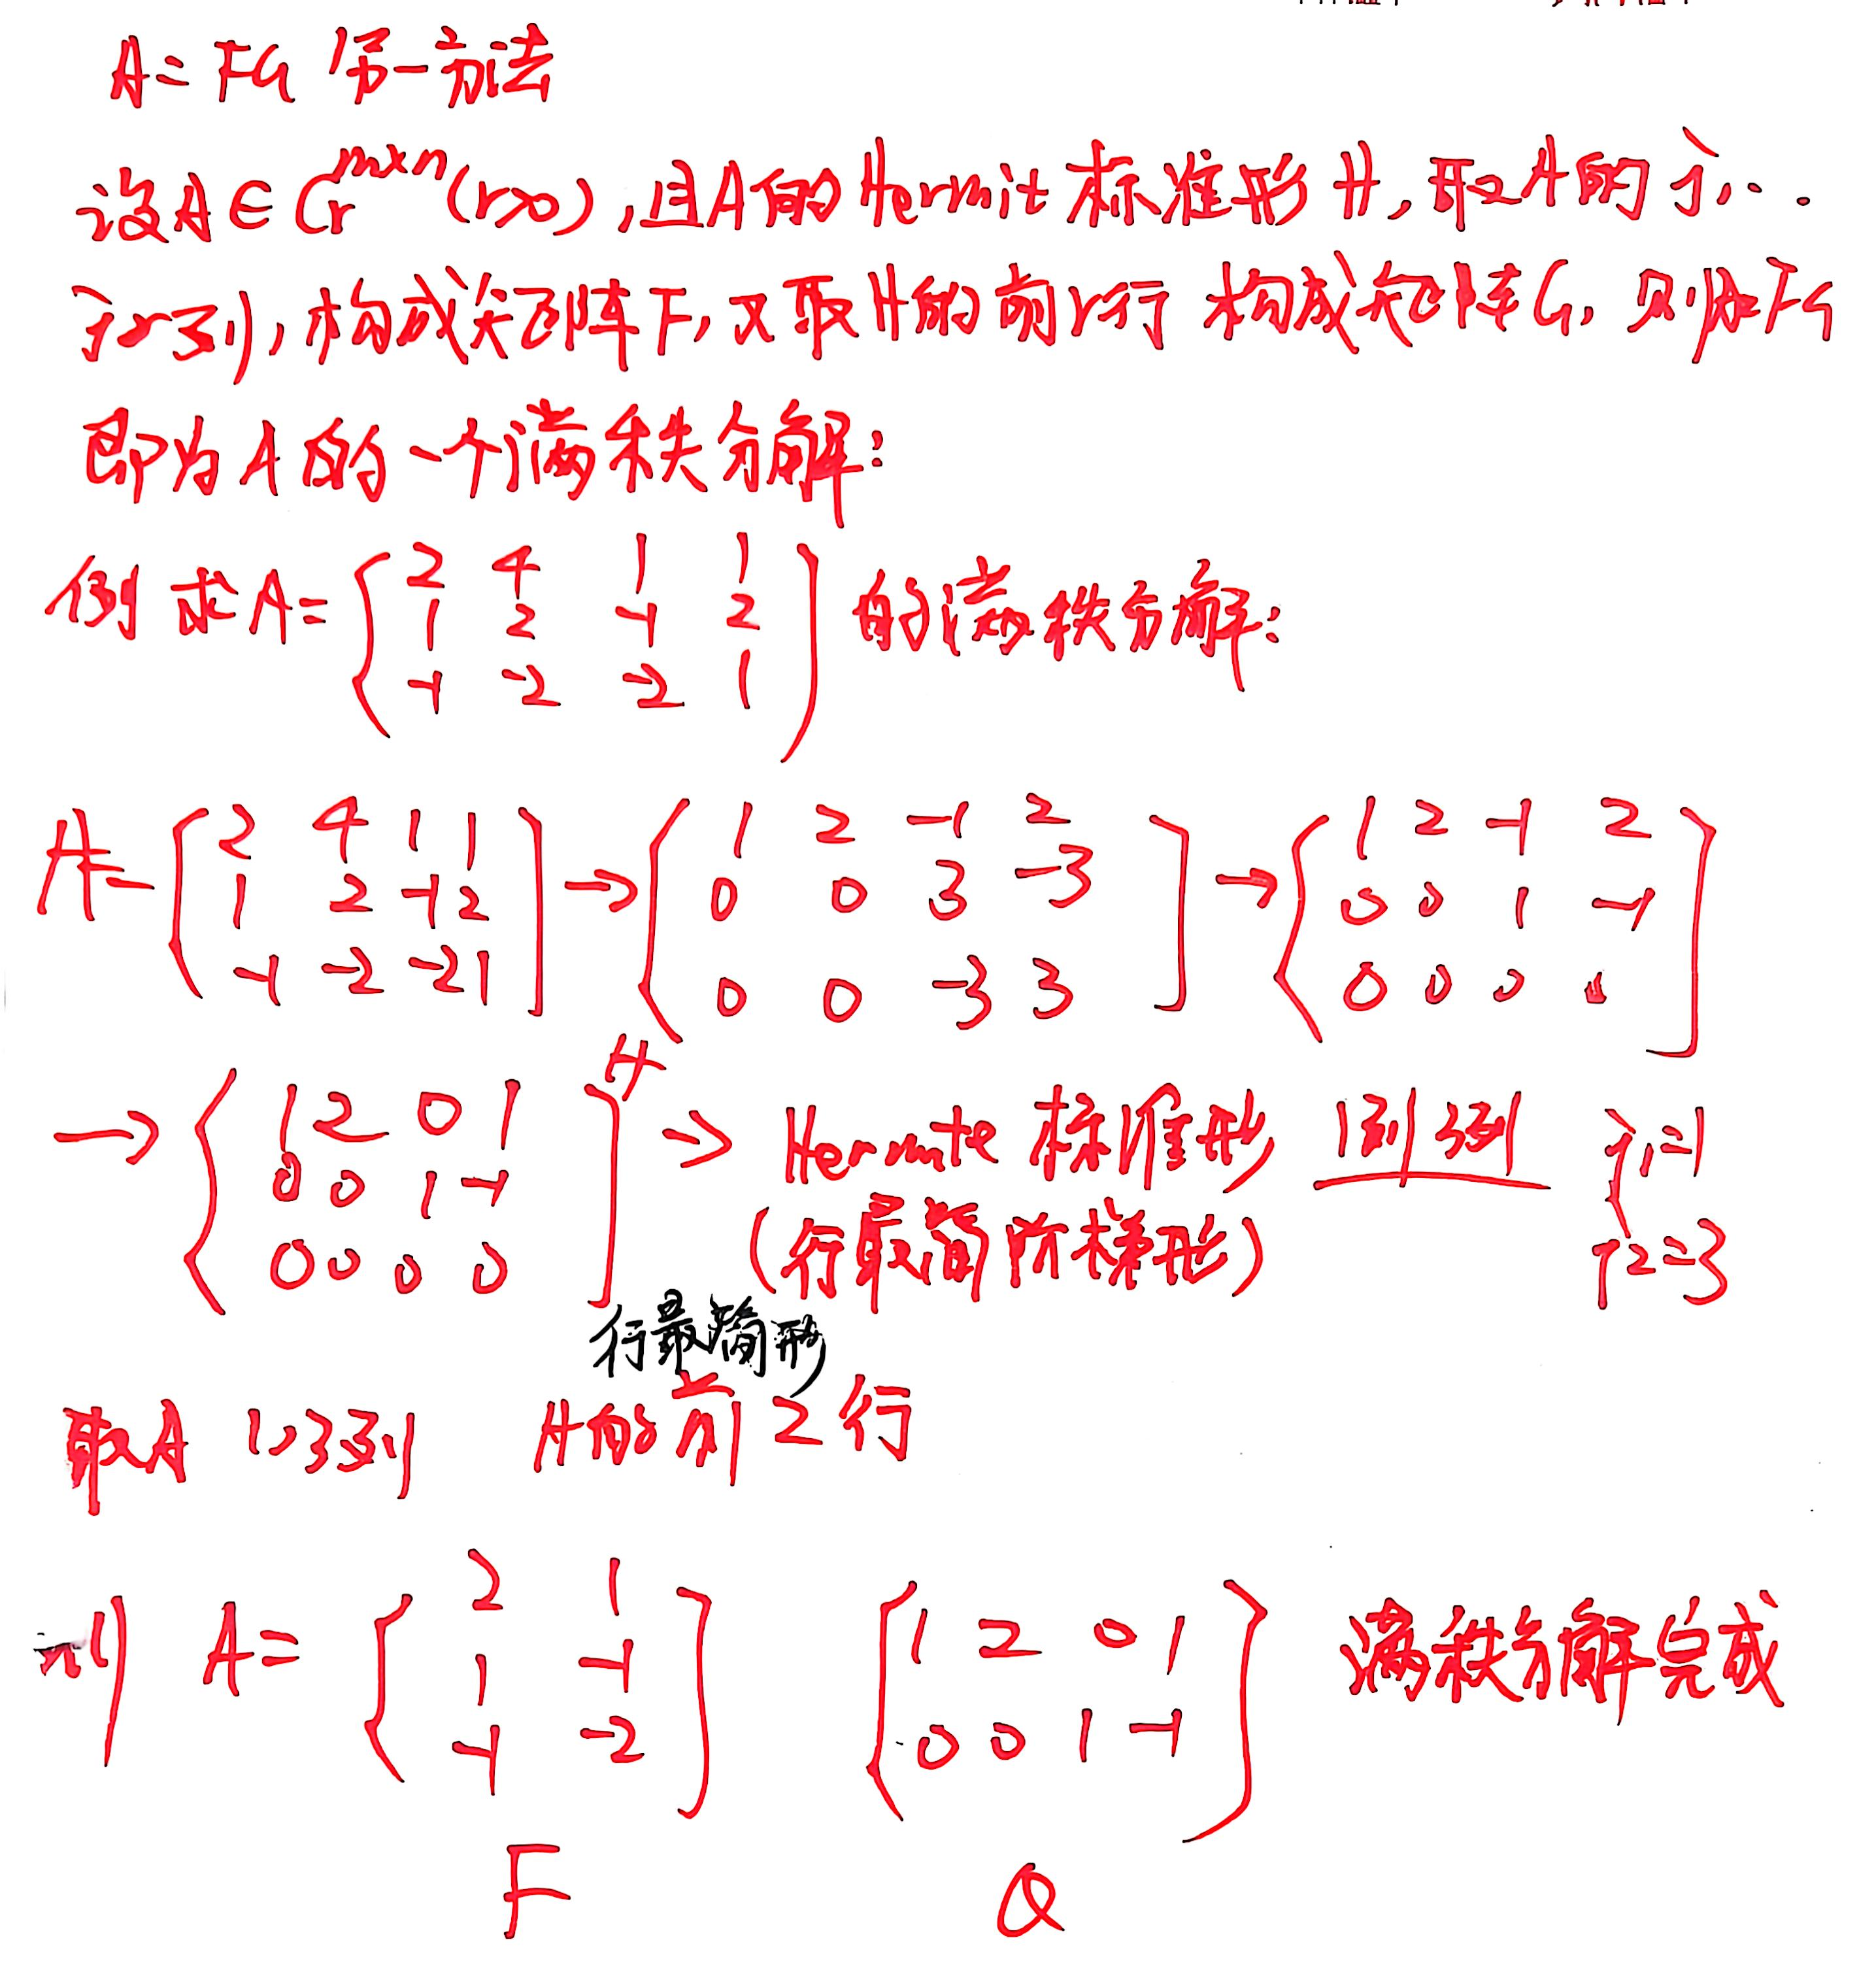 A=FG 另一方法
设A∈Cr^{m×n}(r>0),且A的Hermit标准形H,取A的j₁...
jr列,构成矩阵F,又取H的前r行 构成矩阵G,则A=FG
即为A的一个满秩分解:
例 求A= 的满秩分解:
2 4 1 1
1 2 -1 2
-1 -2 -2 1
A= [2 4 1 1 → [1 2 -1 2 → [1 2 -1 2
1 2 -1 2 0 0 3 -3 0 0 1 -1
-1 -2 -2 1] 0 0 -3 3] 0 0 0 0]
→ [1 2 0 1 H => Hermite 标准形 1列 3列 j1=1
0 0 1 -1 (行最简阶梯形) j2=3
0 0 0 0]
行最简形
取A 1,3列 H的前2行
则 A= [2 1 [1 2 0 1 满秩分解完成
1 -1 0 0 1 -1]
-1 -2]
F Q